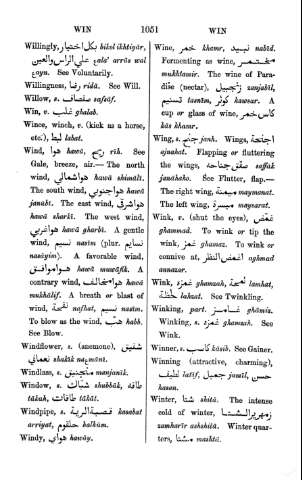 WIN 1051 WIN
Willingly, بكل اختيار bikul ikhtiyār,
علي الراس والعين ạala' arrūs wal
ạoyn. See Voluntarily.
Willingness, رضا riḍā. See Will.
Willow, s. صفصاف ṣafṣāf.
Win, v. غلب ghalab.
Wince, winch, v. (kick as a horse,
etc.), لبط labat.
Wind, هوا hawā, ريح rīḥ. See
Gale, breeze, air.— The north
wind, هواشمالي hawā shimālī.
The south wind, هواجنوبي hawā
janūbī. The east wind, هواشرقي
hawā sharḳī. The west wind,
هواغربي hawā gharbī. A gentle
wind, نسيم nasīm (plur. نسايم
nasāyim). A favorable wind,
هواموافق hawā muwāfiḳ. A
contrary wind, هوامخالف hawā
mukhālif. A breath or blast of
wind, نفحة nafḥat, نسيم nasīm.
To blow as the wind, هب habb.
See Blow.
Windflower, s. (anemone), شقيق
نعماني shakīk naạmānī.
Windlass, s. منجنيق manjanīk.
Window, s. شباك shubbāk, طاقة
tākah, طاقات tākāt.
Windpipe, s. قصبة الرية kasabat
arriyat, حلقوم halkūm.
Windy, هوايي hawāy.
Wine, خمر khamr, نبيد nabīd.
Fermenting as wine, مختمر
mukhtamir. The wine of Para-
dise (nectar), زنجبيل zanjabīl,
تسنيم tasnīm, كوثر kawsar. A
cup or glass of wine, كاس خمر
kās khamr.
Wing, s. جنح janh. Wings, اجنحة
ajnahat. Flapping or fluttering
the wings, صفق جناحه saffak
janāhaho. See Flutter, flap.—
The right wing, ميمنة maymanat.
The left wing, ميسرة maysarat.
Wink, v. (shut the eyes), غمض
ghammad. To wink or tip the
wink, غمز ghamaz. To wink or
connive at, اغمض النظر aghmad
annazar.
Wink, غمزة ghamzah, لمحة lamhat,
لحظة lahzat. See Twinkling.
Winking, part. غامز ghāmiz.
Winking, s. غمزة ghamzah. See
Wink.
Winner, s. كاسب kāsib. See Gainer.
Winning (attractive, charming),
لطيف latīf, جميل jamīl, حسن
hasan.
Winter, شتا shitā. The intense
cold of winter, زمهرير الشتا
zamharīr ashshitā. Winter quar-
ters, مشتا mashtā.